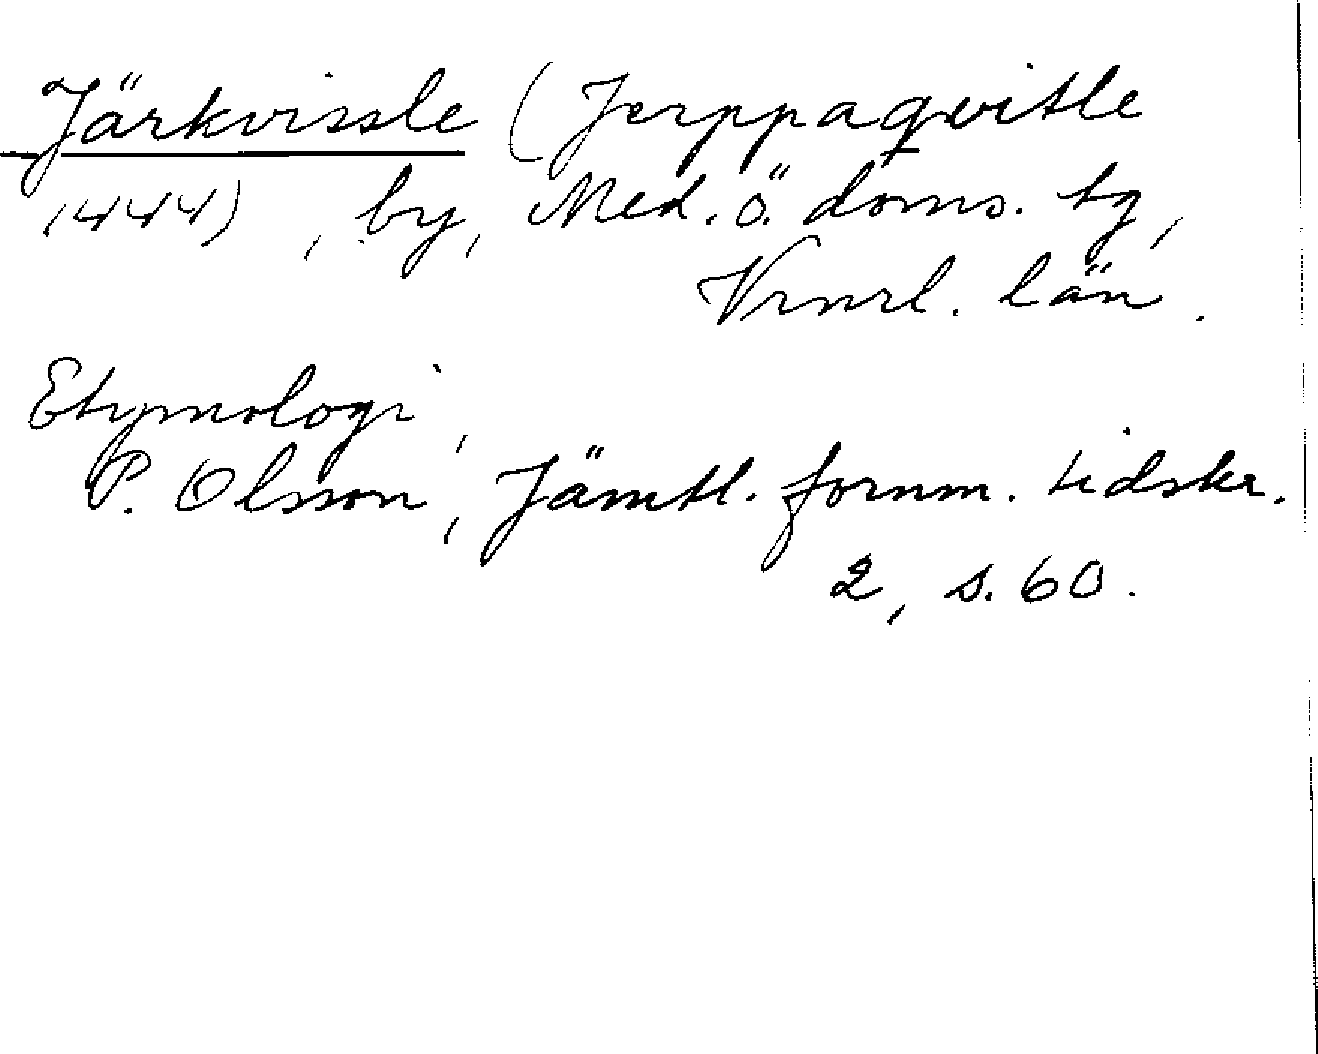 Järkvissle (Jerppaqvitle
1444), by, Med. ö. doms. tg,
Vrnrl. län.
Etymologi,
P. Olsson, Jämtl. fornm. tidskr.
2, s. 60.